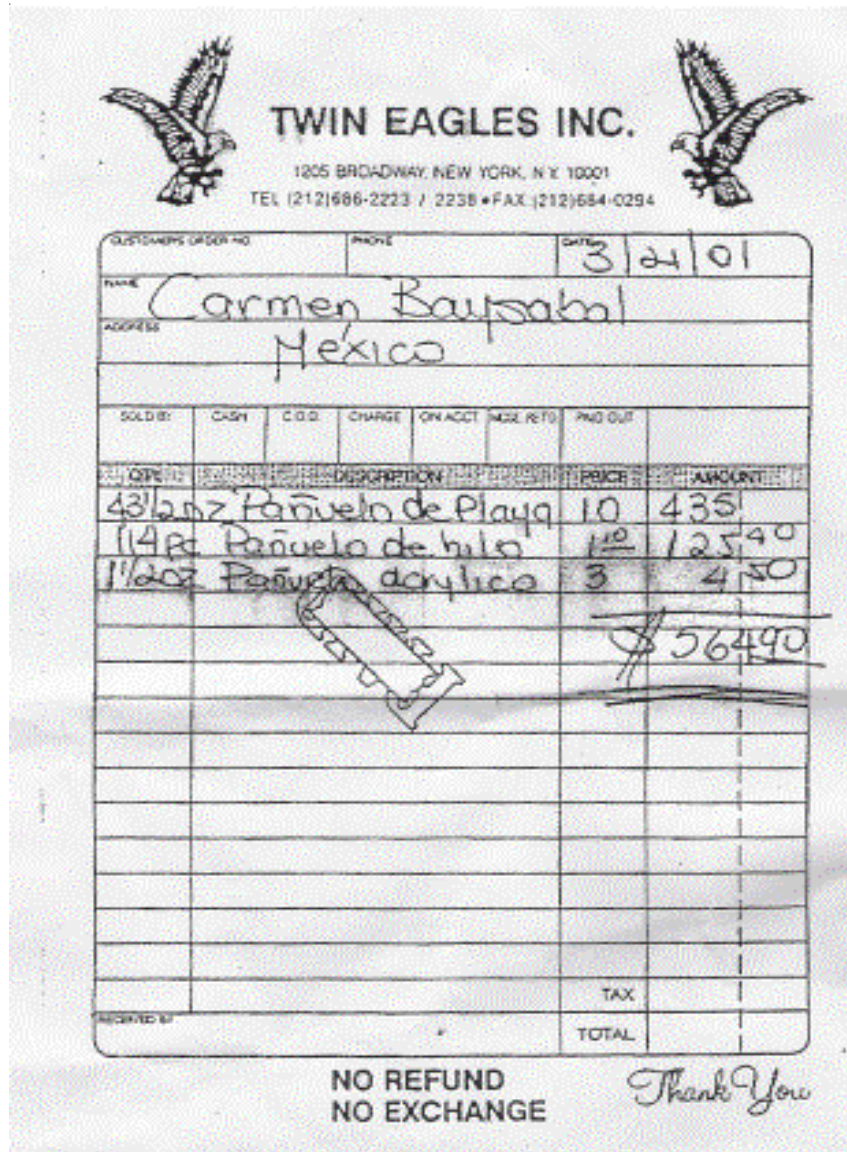 TWIN EAGLES INC.
1205 BROADWAY, NEW YORK, N.Y. 10001
TEL (212)686-2223 / 2238 • FAX (212)684-0294
CUSTOMER'S ORDER NO. PHONE DATE 3/21/01
NAME Carmen
ADDRESS México
SOLD BY CASH C.O.D. CHARGE ON ACCT. MDSE. RETD. PAID OUT
QTY. DESCRIPTION PRICE AMOUNT
43 1/2 DZ Pañuelo de Playa 10 435
114 Pc Pañuelo de hilo 1.10 125.40
1 1/2 DZ Pañuelo 3 4.50
$ 564.90
TAX
RECEIVED BY TOTAL
NO REFUND
NO EXCHANGE
Thank You